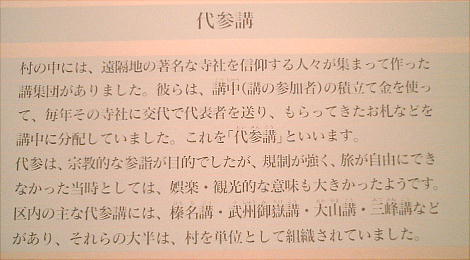 代参講
村の中には、遠隔地の著名な寺社を信仰する人々が集まって作った
講集団がありました。彼らは、講中(講の参加者)の積立て金を使っ
て、毎年その寺社に交代で代表者を送り、もらってきたお札などを
講中に分配していました。これを「代参講」といいます。
代参は、宗教的な参詣が目的でしたが、規制が強く、旅が自由にでき
なかった当時としては、娯楽・観光的な意味も大きかったようです。
区内の主な代参講には、榛名講・武州御嶽講・大山講・三峰講など
があり、それらの大半は、村を単位として組織されていました。